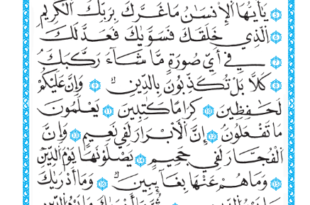 يَٰٓأَيُّهَا ٱلۡإِنسَٰنُ مَا غَرَّكَ بِرَبِّكَ ٱلۡكَرِيمِ
ٱلَّذِي خَلَقَكَ فَسَوَّىٰكَ فَعَدَلَكَ
فِيٓ أَيِّ صُورَةٖ مَّا شَآءَ رَكَّبَكَ
كَلَّا بَلۡ تُكَذِّبُونَ بِٱلدِّينِ وَإِنَّ عَلَيۡكُمۡ
لَحَٰفِظِينَ كِرَامٗا كَٰتِبِينَ يَعۡلَمُونَ
مَا تَفۡعَلُونَ إِنَّ ٱلۡأَبۡرَارَ لَفِي نَعِيمٖ وَإِنَّ
ٱلۡفُجَّارَ لَفِي جَحِيمٖ يَصۡلَوۡنَهَا يَوۡمَ ٱلدِّينِ
وَمَا هُمۡ عَنۡهَا بِغَآئِبِينَ وَمَآ أَدۡرَىٰكَ